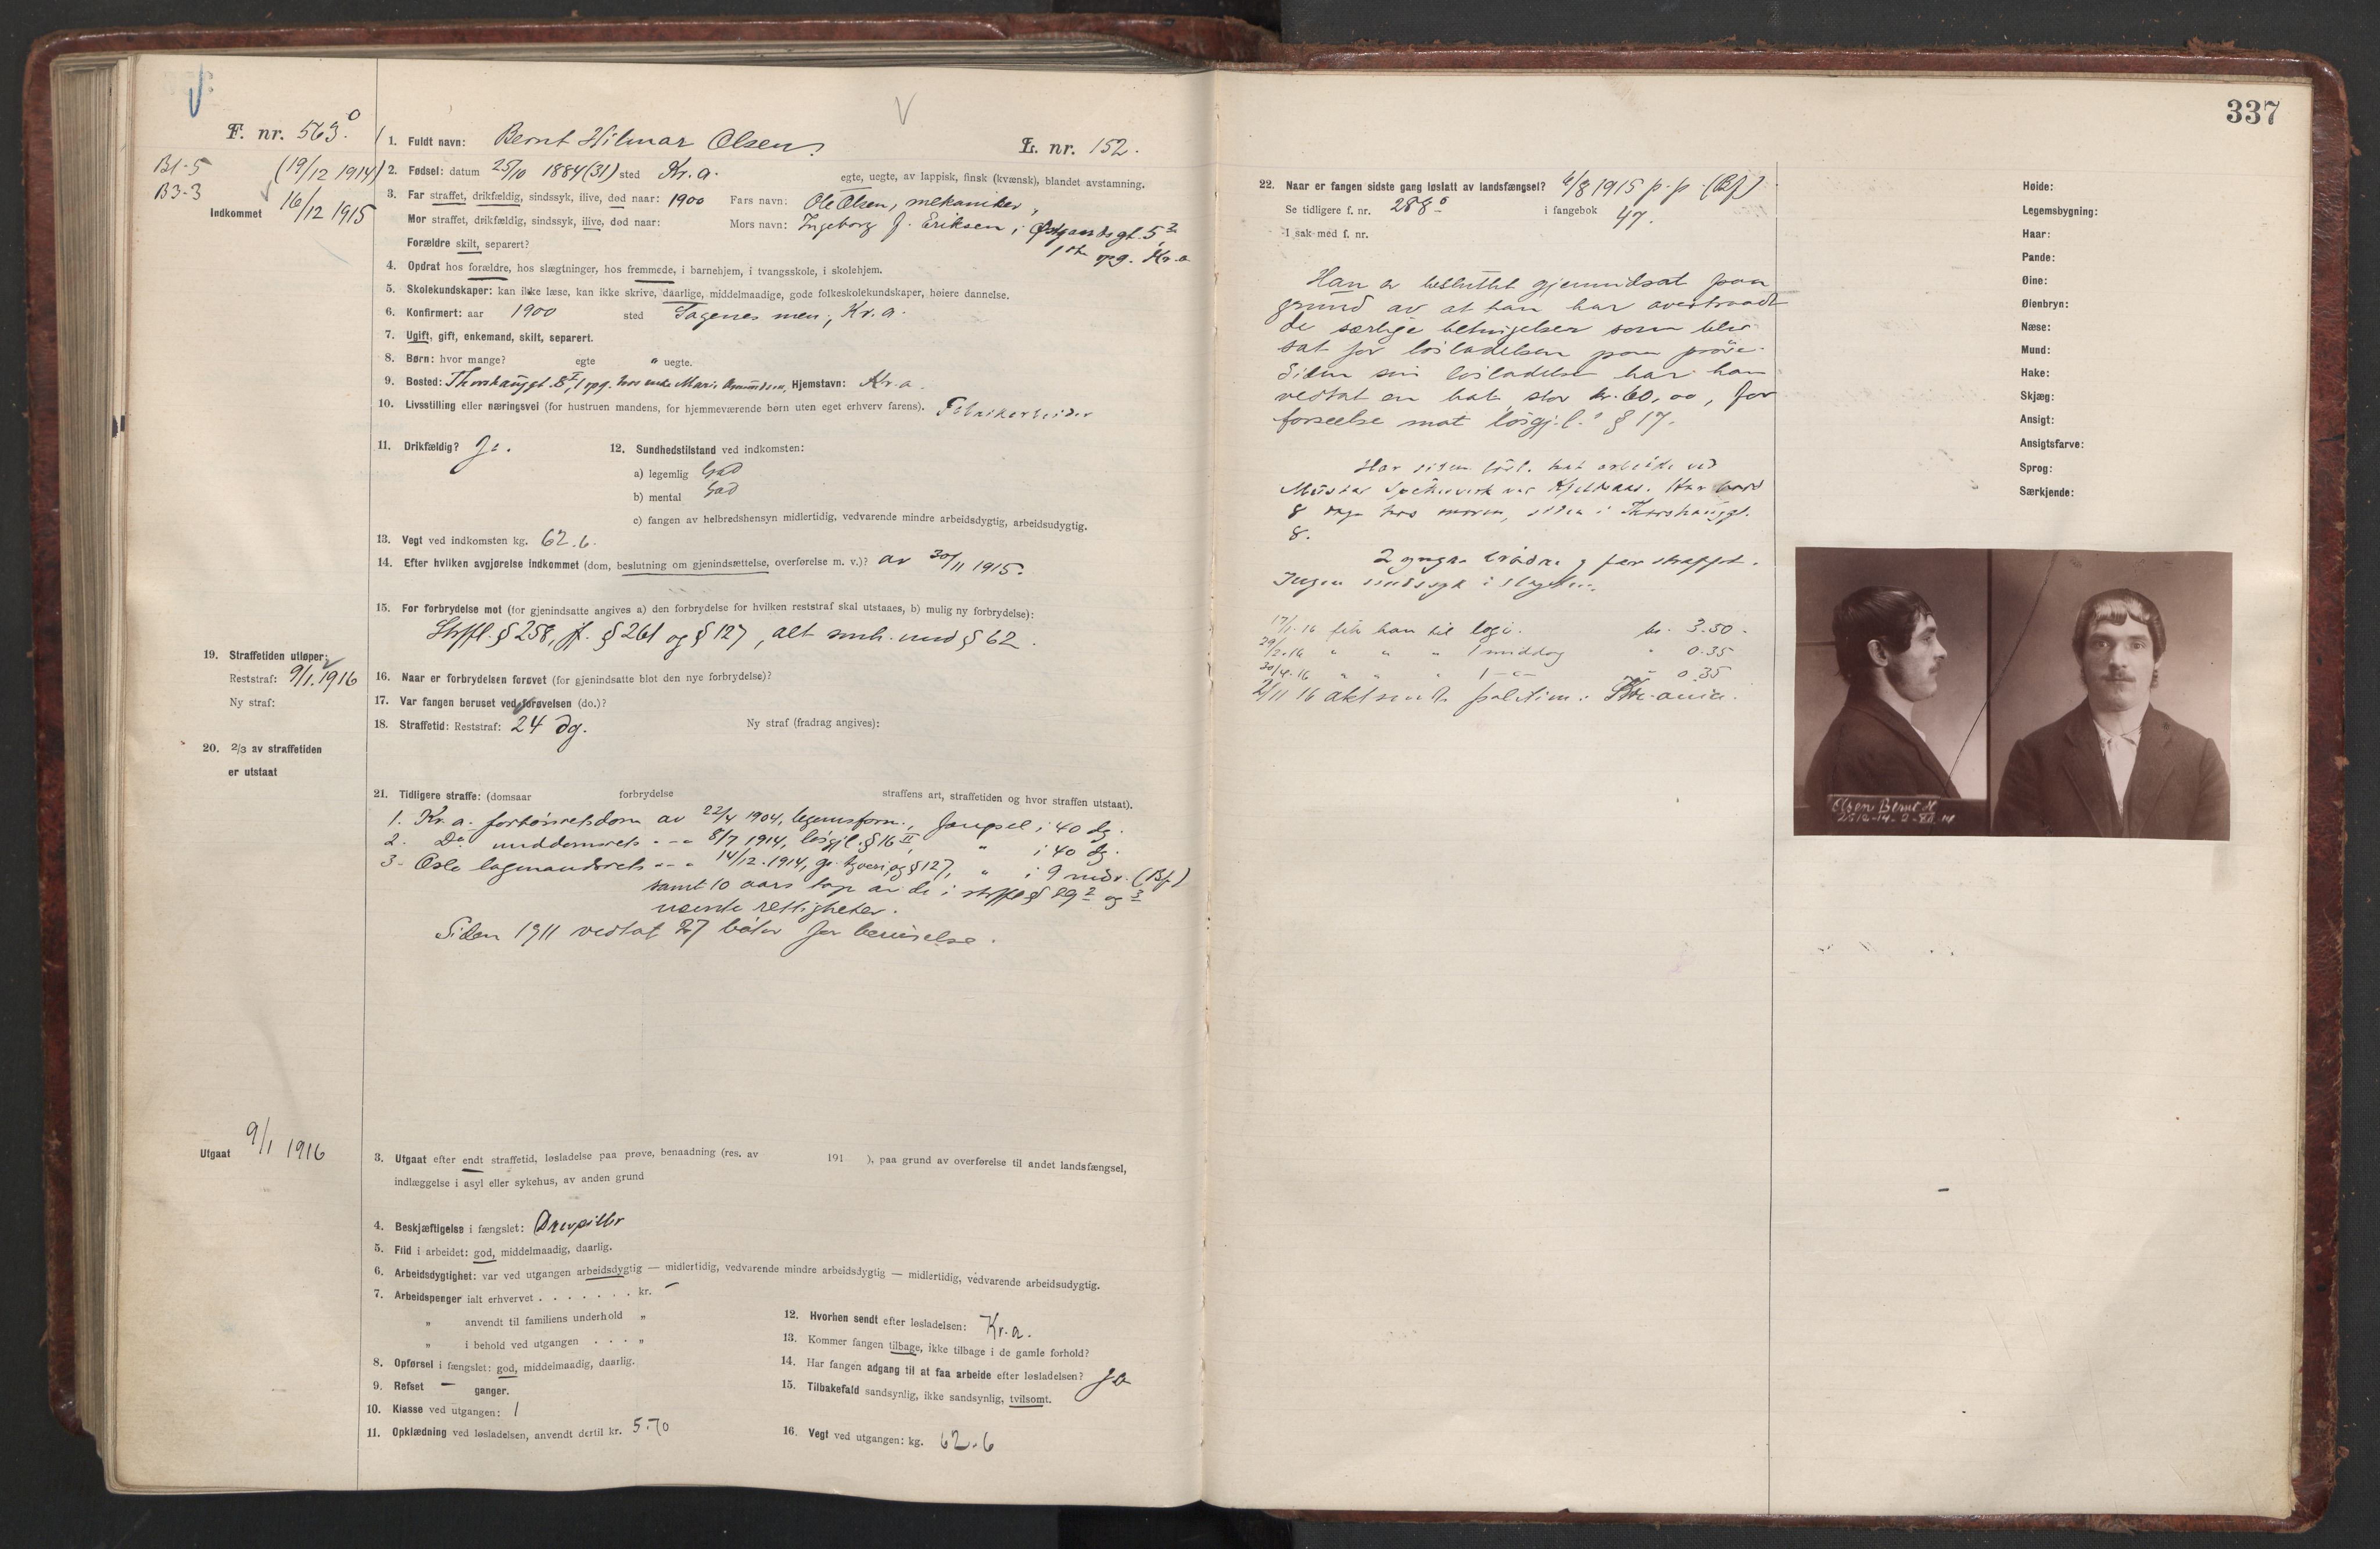 337
F. nr. 563.
B1-5
B3-3
(19/12 1914)
Indkommet 16/12 1915
1. Fuldt navn: Bernt Hilmar Olsen.
L. nr. 152.
2. Fødsel: datum 25/10 1884 (31) sted Kr.a.
egte, uegte, av lappisk, finsk (kvænsk), blandet avstamning.
3. Far straffet, drikfældig, sindssyk, ilive, død naar: 1900 Fars navn: Ole Olsen, mekaniker,
Mor straffet, drikfældig, sindssyk, ilive, død naar: Mors navn: Ingeborg f. Eriksen, i
opg. Kr.a
Forældre skilt, separert?
4. Opdrat hos forældre, hos slægtninger, hos fremmede, i barnehjem, i tvangsskole, i skolehjem.
5. Skolekundskaper: kan ikke læse, kan ikke skrive, daarlige, middelmaadige, gode folkeskolekundskaper, høiere dannelse.
6. Konfirmert: aar 1900 sted Sagenes men., Kr.a.
7. Ugift, gift, enkemand, skilt, separert.
8. Børn: hvor mange? egte " uegte.
9. Bosted: Thorshauggt. 8 I, opg. hos enke Marie Amundsen, Hjemstavn: Kr.a.
10. Livsstilling eller næringsvei (for hustruen mandens, for hjemmeværende børn uten eget erhverv farens). Fabrikarbeider
11. Drikfældig? Ja.
12. Sundhedstilstand ved indkomsten:
a) legemlig God
b) mental God
c) fangen av helbredshensyn midlertidig, vedvarende mindre arbeidsdygtig, arbeidsudygtig.
13. Vegt ved indkomsten kg. 62.6.
14. Efter hvilken avgjørelse indkommet (dom, beslutning om gjenindsættelse, overførelse m. v.)? av 30/11 1915.
15. For forbrydelse mot (for gjenindsatte angives a) den forbrydelse for hvilken reststraf skal utstaaes, b) mulig ny forbrydelse):
Strfl. § 258, jf. § 261 og § 127, alt smh. med § 62.
19. Straffetiden utløper:
Reststraf: 9/1. 1916
Ny straf:
16. Naar er forbrydelsen forøvet (for gjenindsatte blot den nye forbrydelse)?
17. Var fangen beruset ved forøvelsen (do.)?
18. Straffetid: Reststraf: 24 dg. Ny straf (fradrag angives):
20. 2/3 av straffetiden
er utstaat
21. Tidligere straffe: (domsaar forbrydelse straffens art, straffetiden og hvor straffen utstaat).
1. Kr.a. forhørsretsdom av 22/4 1904, legemsforn., fængsel i 40 dg.
2. Do meddomsrets - - - 8/7 1914, løsgjl. § 16 II, " i 40 dg.
3. Oslo lagmandsrets - - - 14/12. 1914, gr. tyveri og § 127, " i 9 mdr. (Bf)
samt 10 aars tap av de i strfl. § 29 2 og 3
nævnte rettigheter.
Siden 1911 vedtat 27 bøter for beruselse.
Utgaat 9/1 1916
3. Utgaat efter endt straffetid, løsladelse paa prøve, benaadning (res. av 191 ), paa grund av overførelse til andet landsfængsel,
indlæggelse i asyl eller sykehus, av anden grund
4. Beskjæftigelse i fængslet: Drevpiller
5. Flid i arbeidet: god, middelmaadig, daarlig.
6. Arbeidsdygtighet: var ved utgangen arbeidsdygtig — midlertidig, vedvarende mindre arbeidsdygtig — midlertidig, vedvarende arbeidsudygtig.
7. Arbeidspenger ialt erhvervet . . . . . . . kr. —
" anvendt til familiens underhold "
" i behold ved utgangen . . . "
8. Opførsel i fængslet: god, middelmaadig, daarlig.
9. Refset — ganger.
10. Klasse ved utgangen: 1
11. Opklædning ved løsladelsen, anvendt dertil kr. 5.70
12. Hvorhen sendt efter løsladelsen: Kr.a.
13. Kommer fangen tilbage, ikke tilbage i de gamle forhold?
14. Har fangen adgang til at faa arbeide efter løsladelsen? Ja
15. Tilbakefald sandsynlig, ikke sandsynlig, tvilsomt.
16. Vegt ved utgangen: kg. 62.6
22. Naar er fangen sidste gang løslatt av landsfængsel? 6/8 1915 p. p. (Bf)
Se tidligere f. nr. 288 i fangebok 47.
I sak med f. nr.
Han er besluttet gjenindsat paa
grund av at han har overtraadt
de særlige betingelser som blev
sat for løsladelsen paa prøve.
Siden sin løsladelse har han
vedtat en bot stor kr. 60,00, for
forseelse mot løsgj.l. § 17.
Har siden løsl. hat arbeide ved
Mustad ved Kjelsaas. Har bodd
8 dage hos moren, siden i Thorshauggt.
8.
2 yngre brødre og far straffet.
Ingen sindssyk i slegten.
17/1-16 fik han til logi. kr. 3.50.
29/2-16 " " " 1 middag " 0.35
30/4-16 " " " 1 - " - " 0.35
2/11 16 akt sendt politim. i Kr.ania.
Høide:
Legemsbygning:
Haar:
Pande:
Øine:
Øienbryn:
Næse:
Mund:
Hake:
Skjæg:
Ansigt:
Ansigtsfarve:
Sprog:
Særkjende:
Olsen Bernt H